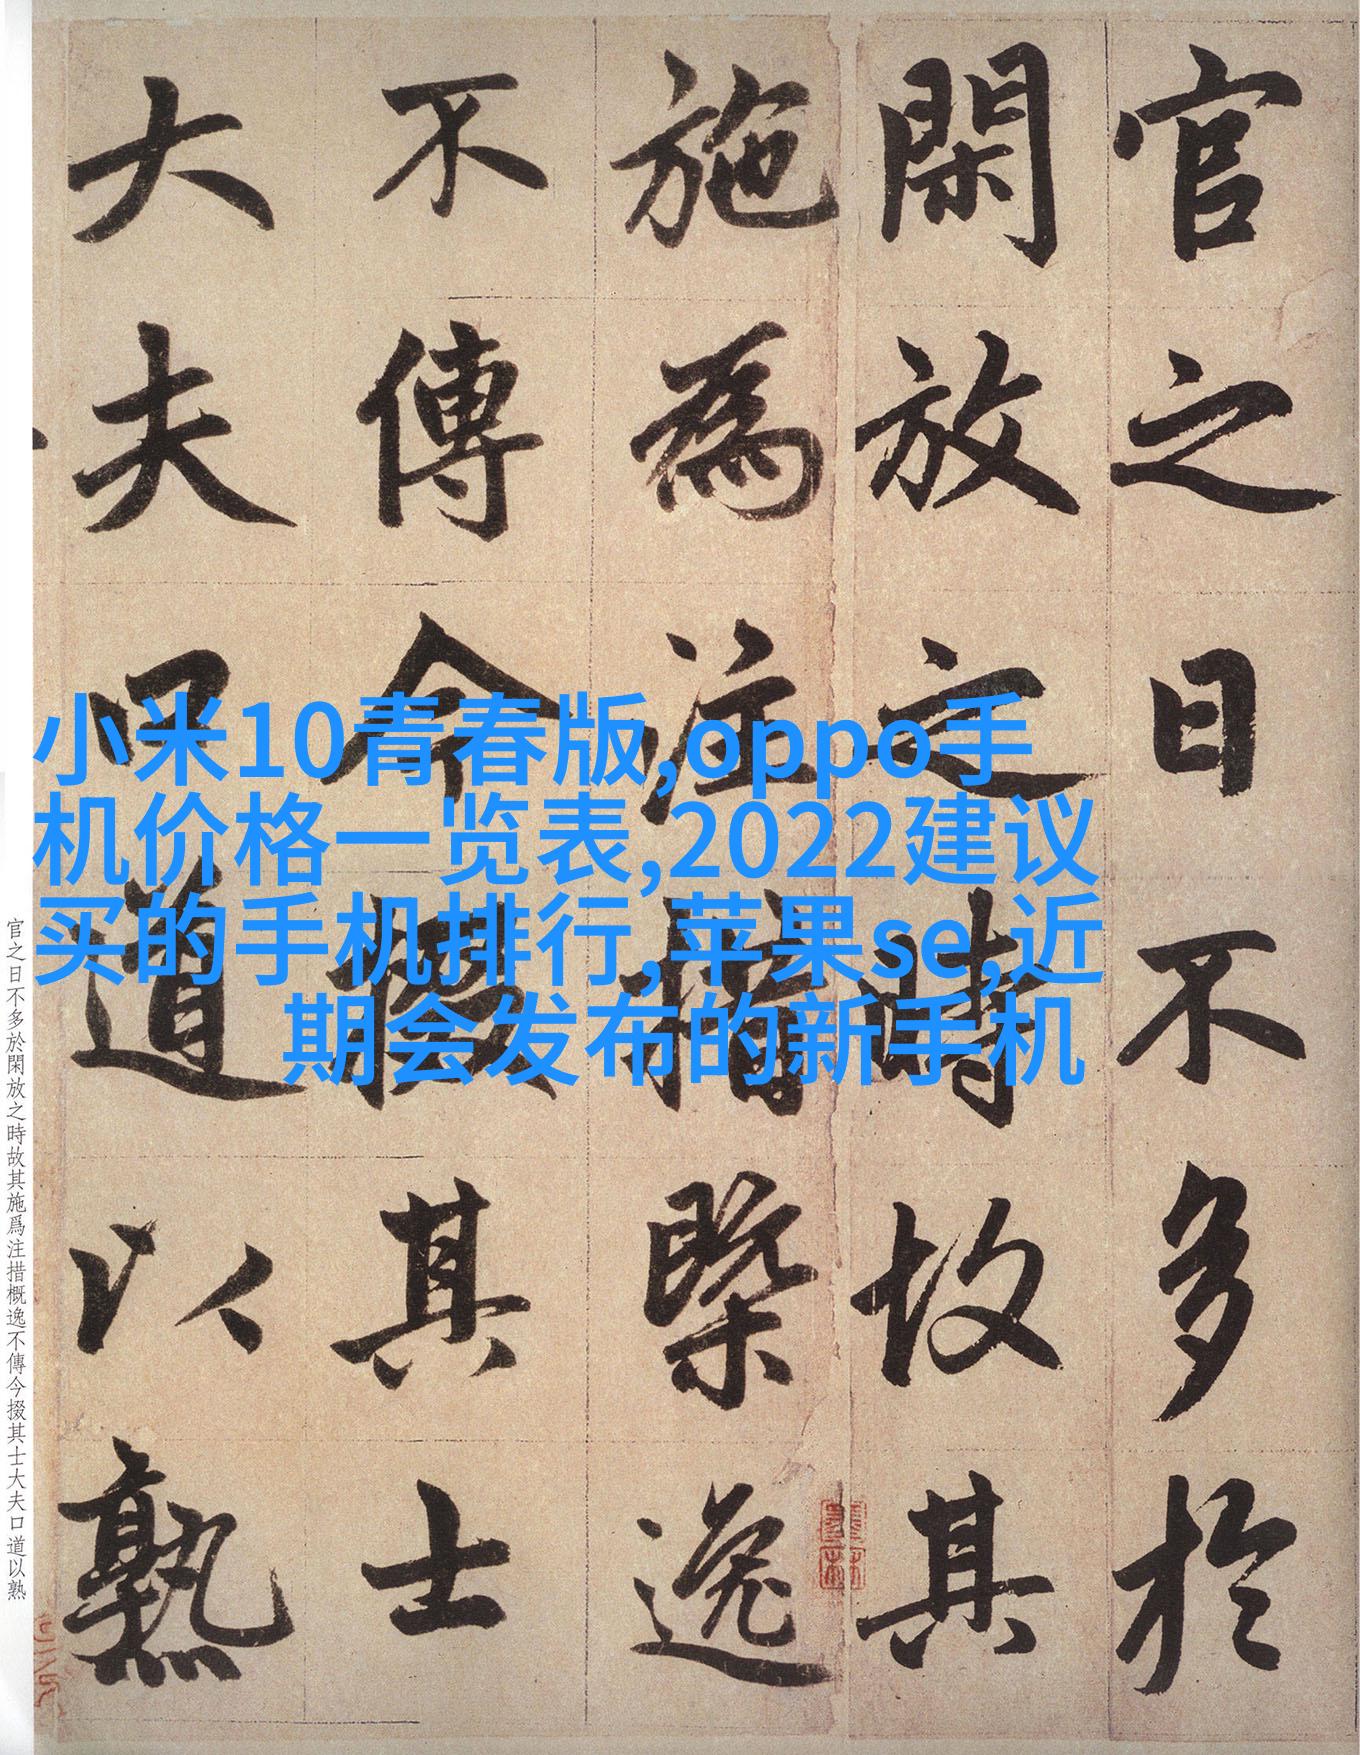 官之日不多於
閑放之時故其
施為注措槩逸
不傳今掇其士
大夫口道以熟
小米10青春版,oppo手
机价格一览表,2022建议
买的手机排行,苹果se,近
期会发布的新手机
官之日不多於閑放之時故其施爲注措概逸不傳今掇其士大夫口道以熟